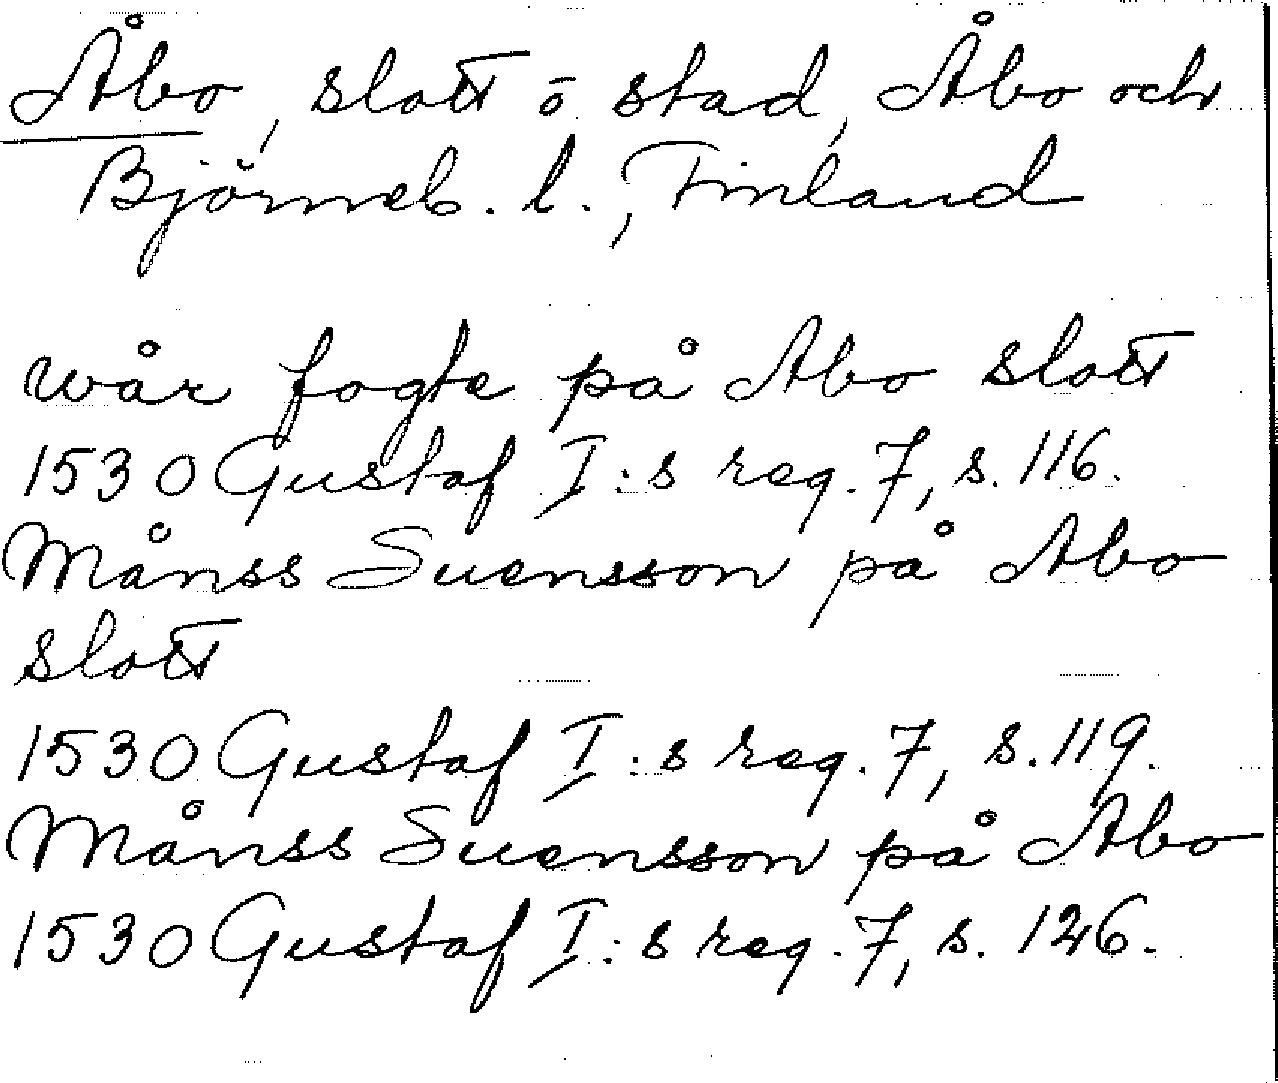 Åbo, slott ō stad, Åbo och
Björneb. l., Finland
wår fogte på Abo slott
1530 Gustaf I:s reg. 7, s. 116.
Månss Suensson på Abo
slott
1530 Gustaf I:s reg. 7, s. 119.
Månss Suensson på Abo
1530 Gustaf I:s reg. 7, s. 126.